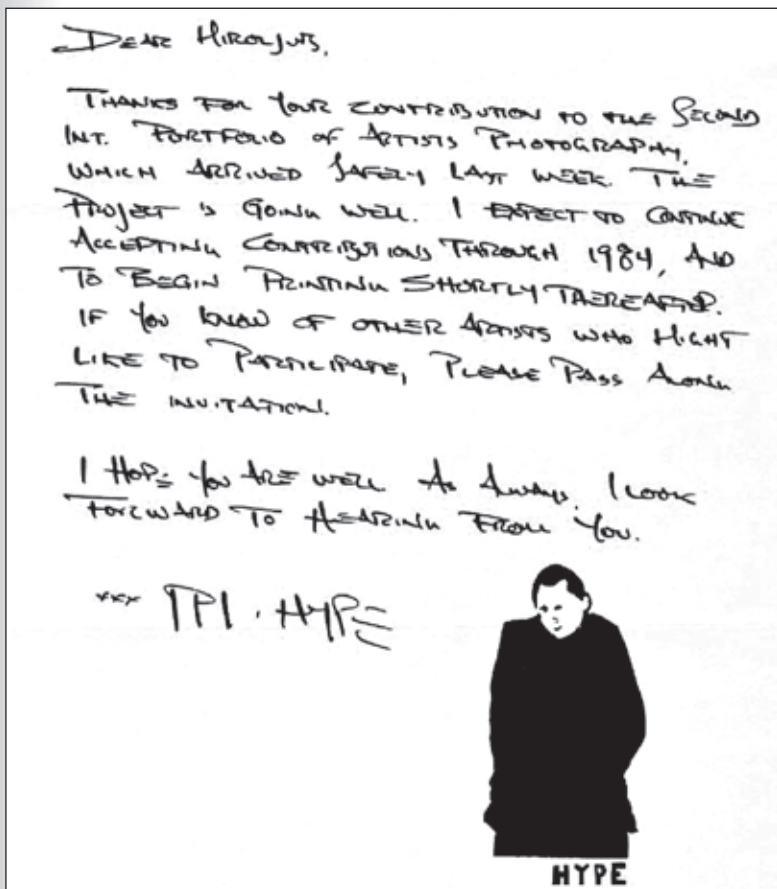 DEAR MIROLJUB,
THANKS FOR YOUR CONTRIBUTION TO THE SECOND
INT. PORTFOLIO OF ARTISTS PHOTOGRAPHY,
WHICH ARRIVED SAFELY LAST WEEK. THE
PROJECT IS GOING WELL. I EXPECT TO CONTINUE
ACCEPTING CONTRIBUTIONS THROUGH 1984, AND
TO BEGIN PRINTING SHORTLY THEREAFTER.
IF YOU KNOW OF OTHER ARTISTS WHO MIGHT
LIKE TO PARTICIPATE, PLEASE PASS ALONG
THE INVITATION.
I HOPE YOU ARE WELL. AS ALWAYS, I LOOK
FORWARD TO HEARING FROM YOU.
xxx HYPE
HYPE